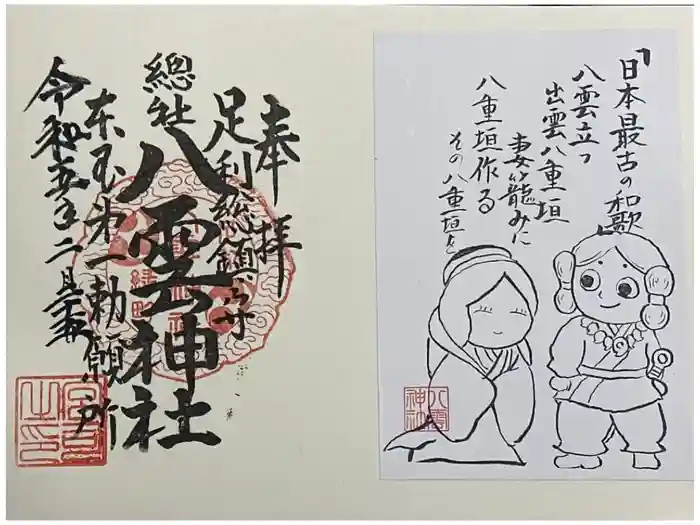 奉拝
足利總鎮守
總社
八雲神社
東国第一勅願所
令和五年二月二十五日
「日本最古の和歌
八雲立つ
出雲八重垣
妻籠みに
八重垣作る
その八重垣を
八雲
神社